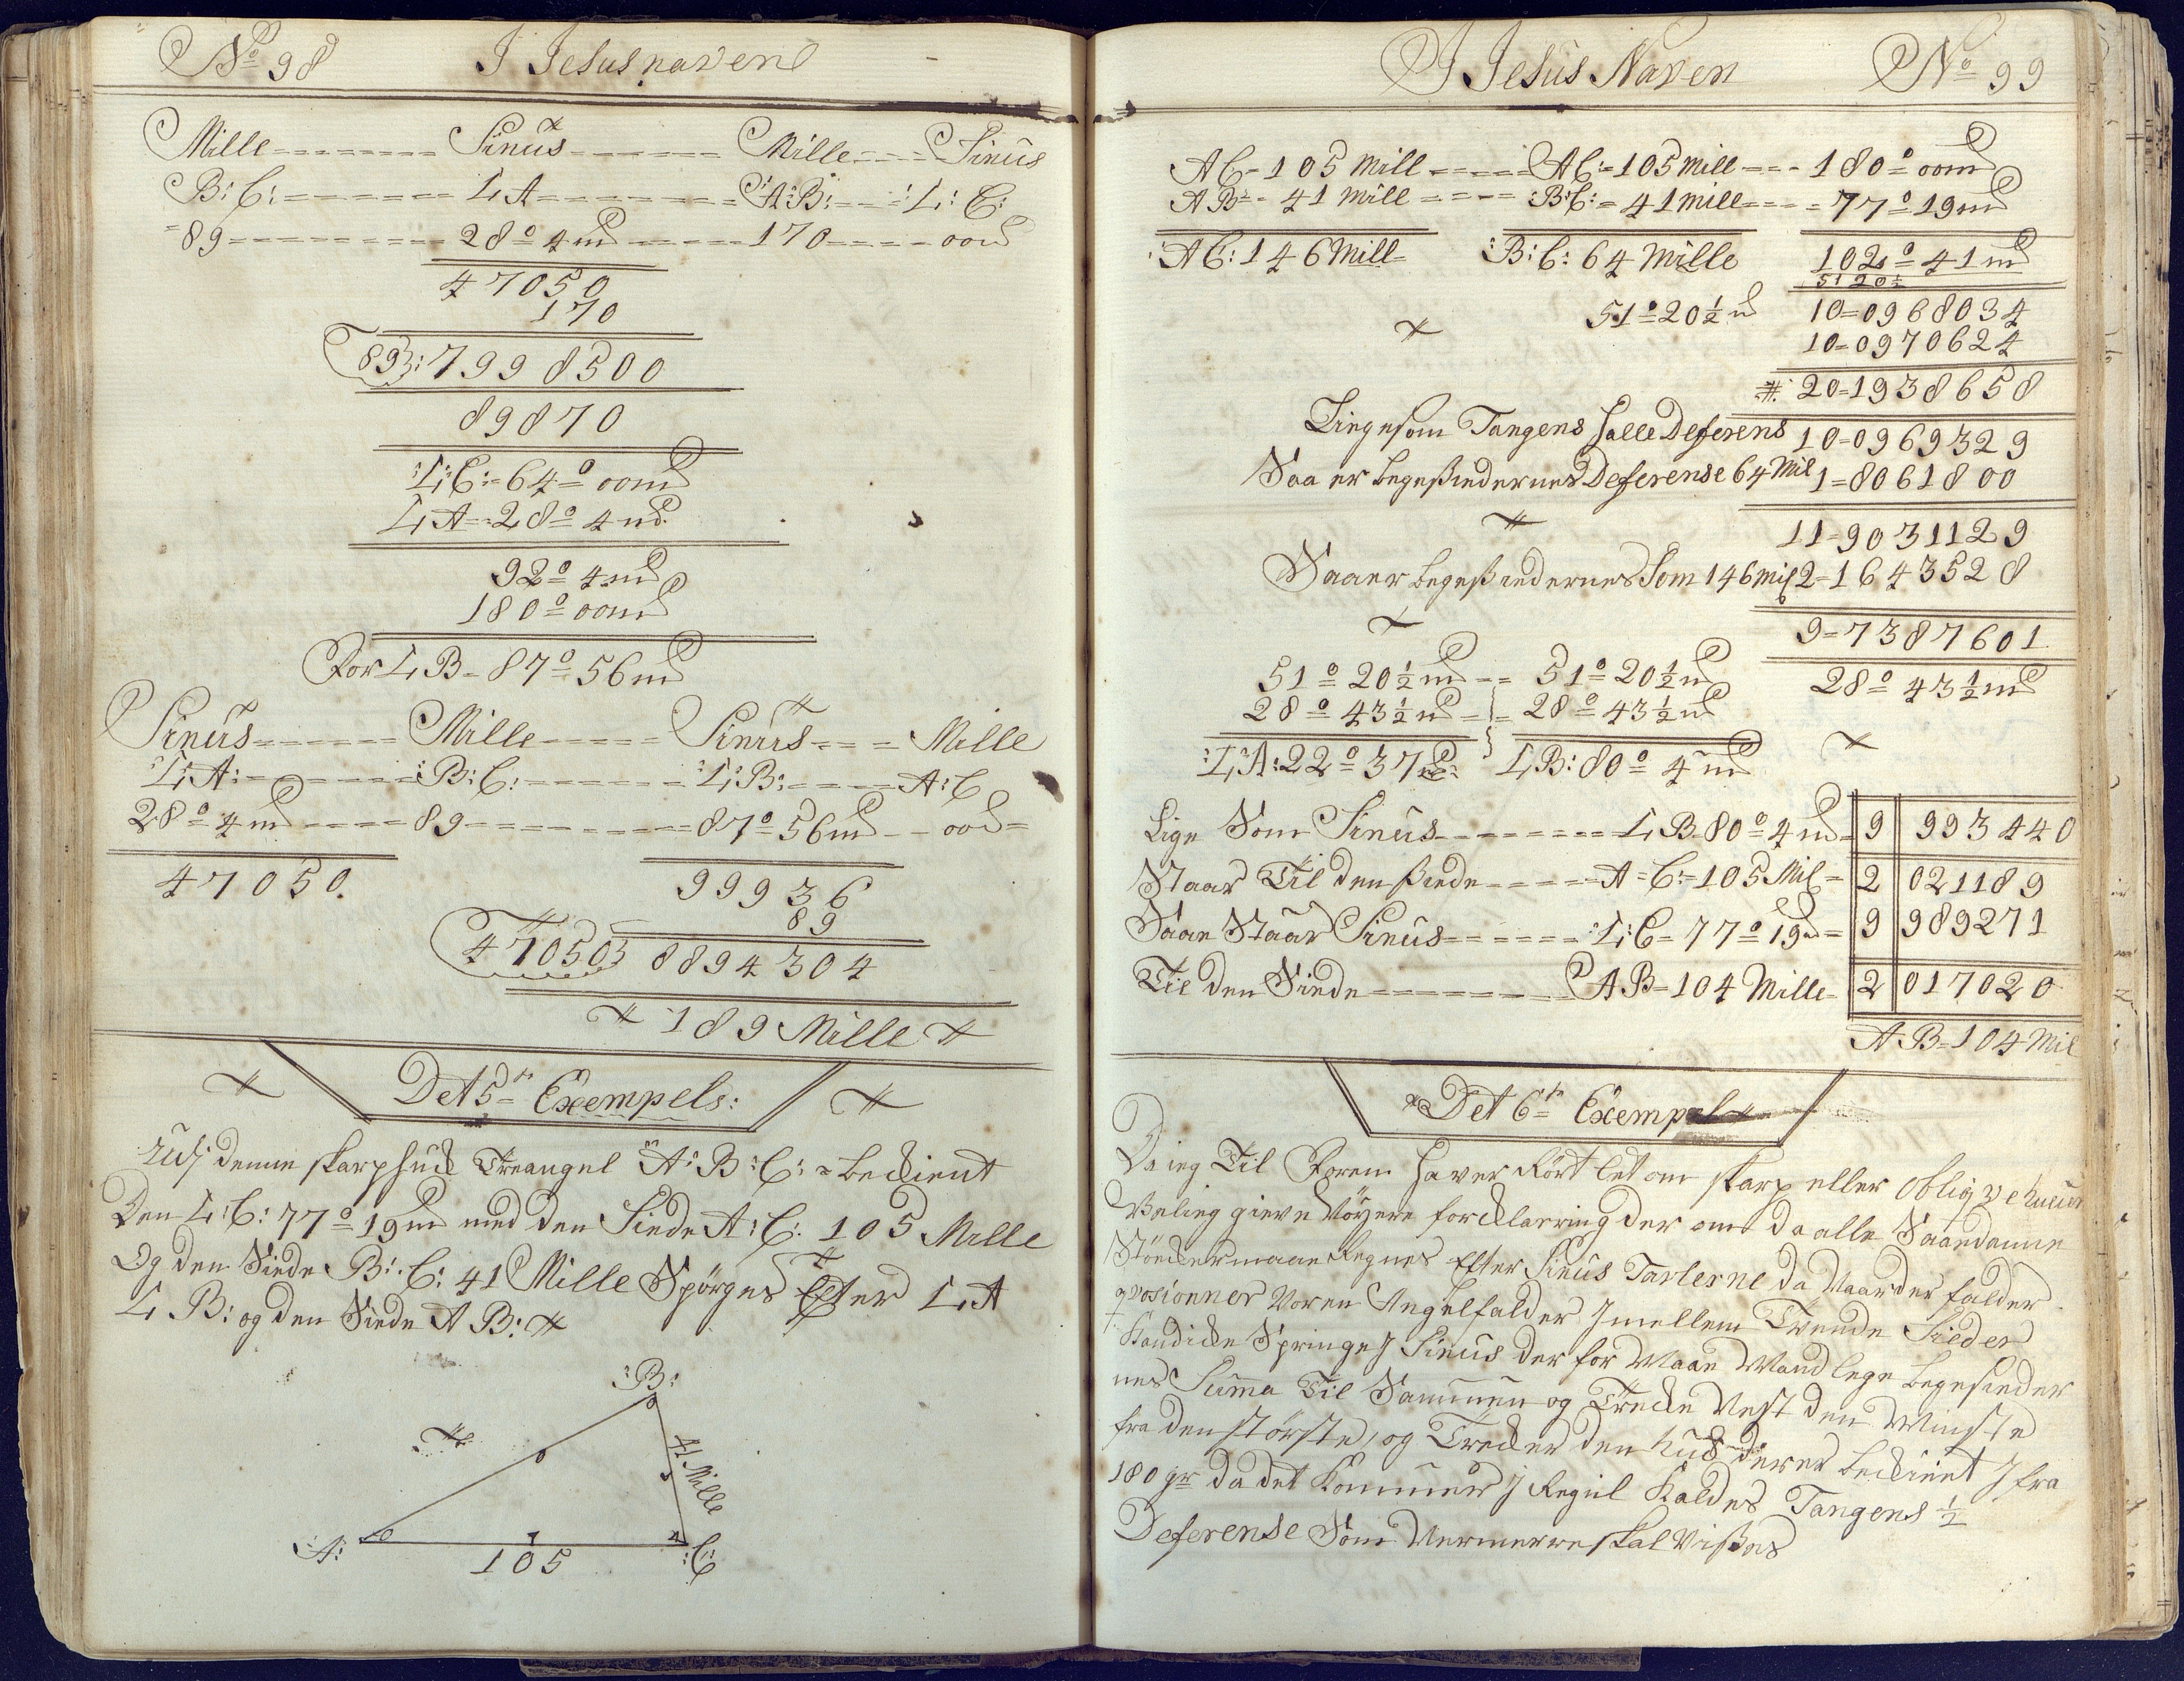 No 98 I Jesus naven
Mille Sinus Mille Sinus
B:C: L A A:B: L:C:
89 28° 4 m 170 00
47050
170
89: 7998500
89870
L:C:=64° 00m
L A=28° 4 m
92° 4 m
180° 00m
For L B=87° 56m
Sinus Mille Sinus Mille
L:A: B:C: L:B: A:C
28° 4 m 89 87° 56m 00
47050. 99936
89
47050 8894304
189 Mille
Det 5te Exempels:
denne skarphuck Treangel A:B:C: beckient
Den L:C: 77° 19m med den Siede A:C: 105 Mille
Og den Siede B:C: 41 Mille Spörges Efter L A
L B: og den Siede A B:
:B:
41 Mille
:A: :C:
105
I Jesus Naven No 99
AC=105 Mill AC:=105 Mill 180° 00m
AB=41 Mill B:C:=41 Mill 77° 19m
AC: 146 Mill B:C: 64 Mille 102° 41m
51 20½
51° 20½ m 10=0968034
10=0970624
20=1938658
Liigesom Tangens halle Deferens 10=0969329
Saa er begesiedernes Deferense 64 Mil 1=8061800
11=9031129
Saa er begesiedernes Som 146 mil 2=1643528
9=7387601
51° 20½ m 51° 20½ m 28° 43½ m
28° 43½ m 28° 43½ m
L A: 22° 37 L B: 80° 4 m
Lige Som Sinus L B=80° 4 m 9 993440
Staar Til den Siede A=C:=105 Mil 2 021189
Saae Staar Sinus L:C=77° 19m 9 989271
Til den Siede AB=104 Mille 2 017020
A B=104 Mil
Det 6te Exempel
Da ieg Til Foren haver Rört let om skarp eller obliqve
Vil ieg gieve Nöyere forcklarring der om da alle Saadanne
Stöcker maae Regnes efter Sinus Taflerne da Naar der falder
qvosionner Voren Angel falder Imellem Tvende Sieder
Kand icke Springe I Sinus der for Maae Mand lege begesieder
nes Summa Til Sammen og Trecke Nest den Minste
fra den störste, og Trecker den huck der er beckient Ifra
180 gr da det kommer I Regul kaldes Tangens ½
Deferense Som Nermerre skal Vises